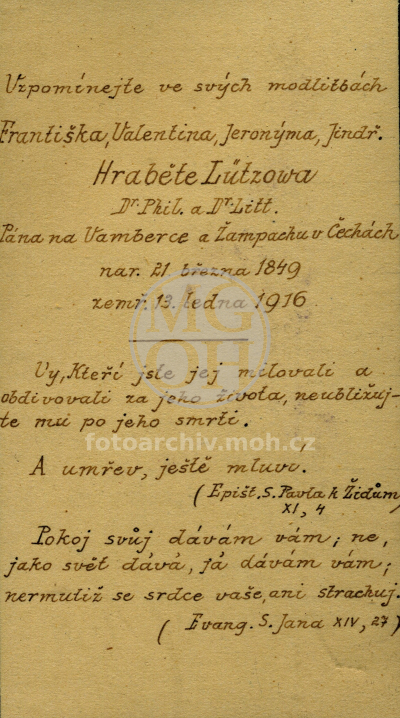 Vzpomínejte ve svých modlitbách
Františka, Valentina, Jeronýma, Jindř.
Hraběte Lützowa
Dr. Phil. a Dr. Litt.
Pána na Vamberce a Žampachu v Čechách
nar. 21 března 1849
zemř. 13. ledna 1916
MG
OH
Vy, Kteří jste jej milovali a
obdivovali za jeho života, neubližuj-
te mu po jeho smrti.
fotoarchiv.moh.cz
A umřev, ještě mluví.
(Epišt. S. Pavla k Židům
XI, 4
Pokoj svůj dávám vám; ne,
jako svět dává, já dávám vám;
nermutiž se srdce vaše, ani strachuj.
(Evang. S. Jana XIV, 27)